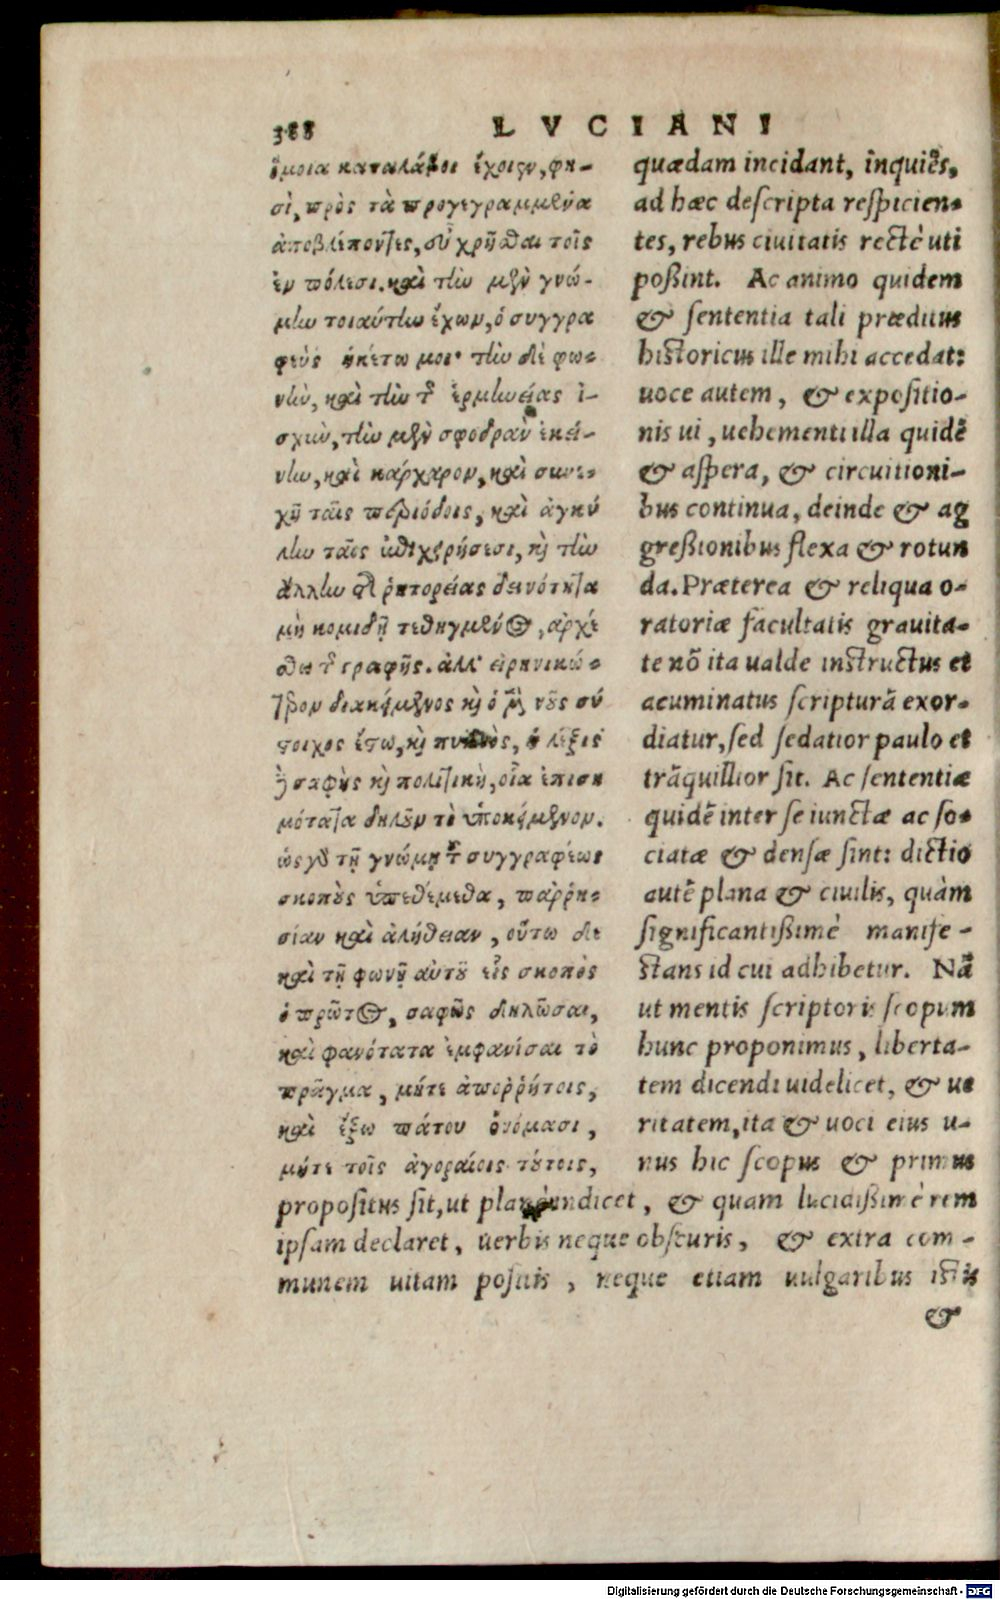 388 LVCIANI
ὅμοια καταλάβοι ἔχοιεν, φη-
σὶ, πρὸς τὰ προγεγραμμένα
ἀποβλέποντες, εὖ χρῆσθαι τοῖς
ἐν πόλεσι. καὶ τὴν μὲν γνώ-
μην τοιαύτην ἔχων, ὁ συγγρα
φεὺς ἡκέτω μοι· τὴν δὲ φω-
νὴν, καὶ τὴν τῆς ἑρμηνείας ἰ-
σχὺν, τὴν μὲν σφοδρὰν ἐκεί-
νην, καὶ κάρχαρον, καὶ συνε-
χῆ ταῖς περιόδοις, καὶ ἀγκύ
λην ταῖς ἐπιχειρήσεσι, καὶ τὴν
ἄλλην τῆς ῥητορείας δεινότητα
μὴ κομιδῆ τεθηγμένος, ἀρχέ
σθω τῆς γραφῆς. ἀλλ' εἰρηνικώ-
τερον διακείμενος καὶ ὁ μὲν νοῦς σύ
στοιχος ἔστω, καὶ πυκνὸς, ἡ λέξις
δὲ σαφὴς καὶ πολιτικὴ, οἵα ἐπιση
μότατα δηλοῦν τὸ ὑποκείμενον.
ὡς γὰρ τῆ γνώμῃ τοῦ συγγραφέως
σκοποὺς ὑπεθέμεθα, παῤῥη-
σίαν καὶ ἀλήθειαν, οὕτω δὲ
καὶ τῇ φωνῇ αὐτοῦ εἷς σκοπὸς
ὁ πρῶτος, σαφῶς δηλῶσαι,
καὶ φανότατα ἐμφανίσαι τὸ
πρᾶγμα, μήτε ἀποῤῥήτοις,
καὶ ἔξω πάτου ὀνόμασι,
μήτε τοῖς ἀγοραίοις τούτοις,
quædam incidant, inquiẽs,
ad hæc descripta respicien-
tes, rebus ciuitatis rectè uti
poßint. Ac animo quidem
& sententia tali præditus
historicus ille mihi accedat:
uoce autem, & expositio-
nis ui, uehementi illa quidẽ
& aspera, & circuitioni-
bus continua, deinde & ag
greßionibus flexa & rotun
da. Præterea & reliqua o-
ratoriæ facultatis grauita-
te nõ ita ualde instructus et
acuminatus scripturã exor-
diatur, sed sedatior paulo et
trãquillior sit. Ac sententiæ
quidẽ inter se iunctæ ac so-
ciatæ & densæ sint: dictio
autẽ plana & ciuilis, quàm
significantißimè manife-
stans id cui adhibetur. Nã
ut mentis scriptoris scopum
hunc proponimus, liberta-
tem dicendi uidelicet, & ue
ritatem, ita & uoci eius u-
nus hic scopus & primus
propositus sit, ut planè indicet, & quam lucidißimè rem
ipsam declaret, uerbis neque obscuris, & extra com-
munem uitam positis, neque etiam uulgaribus istis
&
Digitalisierung gefördert durch die Deutsche Forschungsgemeinschaft - DFG